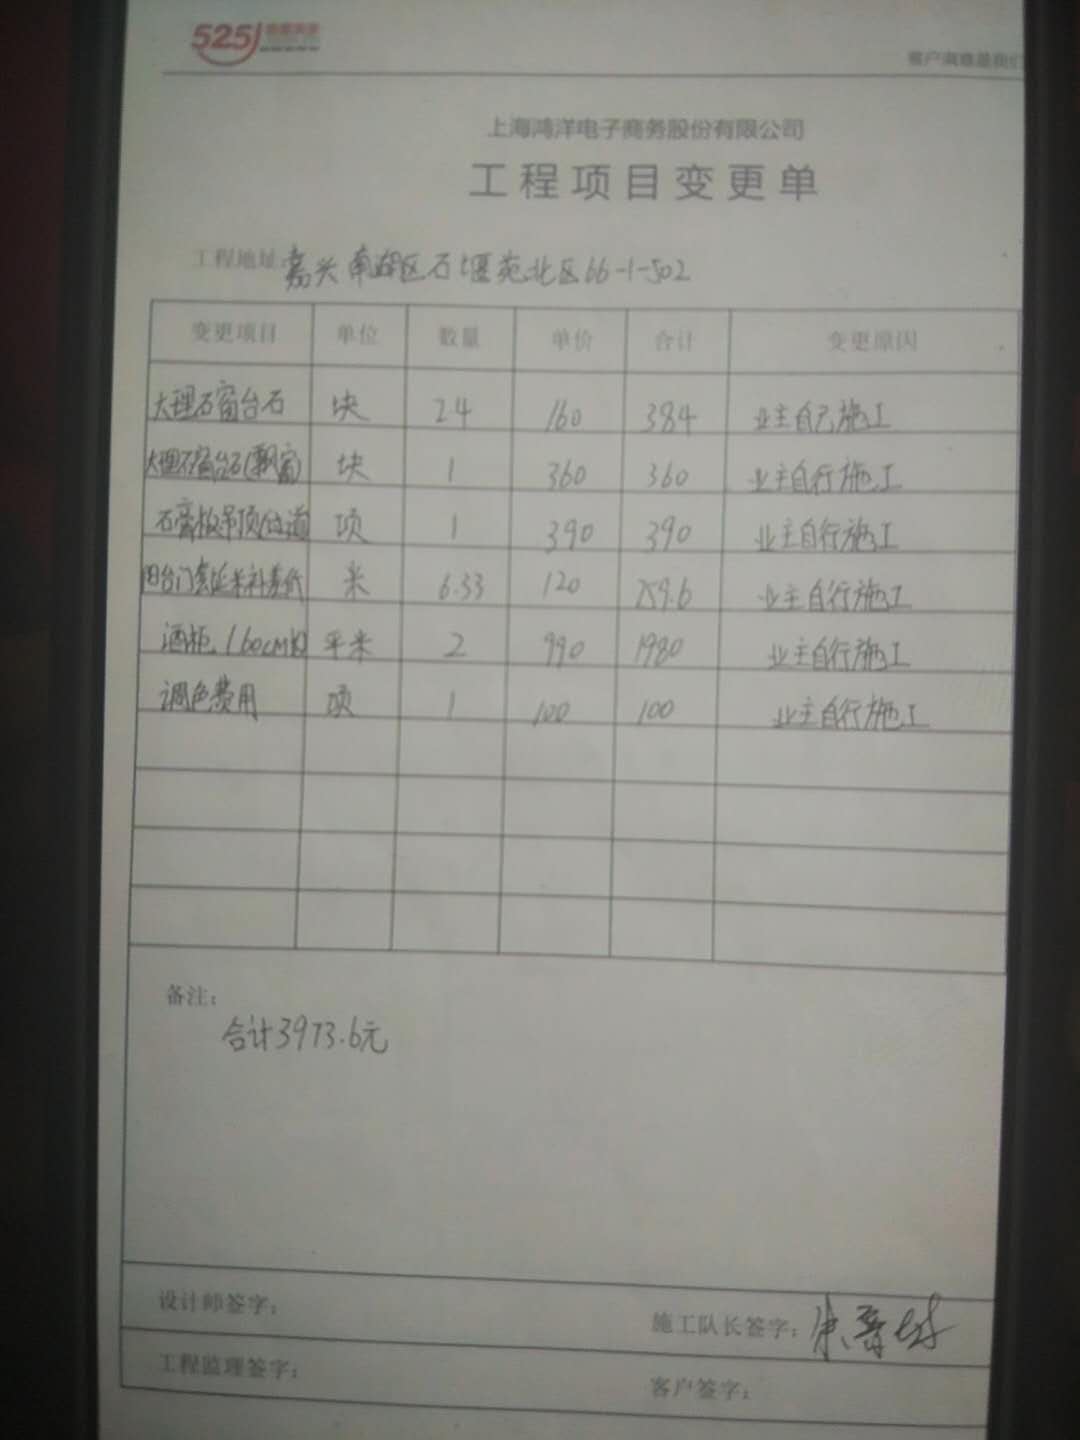 525
客户满意是我们
上海鸿洋电子商务股份有限公司
工程项目变更单
工程地址:嘉兴南湖区石堰苑北区66-1-502
变更项目 单位 数量 单价 合计 变更原因
大理石窗台石 块 2.4 160 384 业主自己施工
大理石窗台石(飘窗) 块 1 360 360 业主自行施工
石膏板吊顶 项 1 390 390 业主自行施工
阳台门套延米补差价 米 6.33 120 759.6 业主自行施工
酒柜160cm 平米 2 990 1980 业主自行施工
调色费用 项 1 100 100 业主自行施工
备注:
合计3973.6元
设计师签字: 施工队长签字:
工程监理签字: 客户签字: